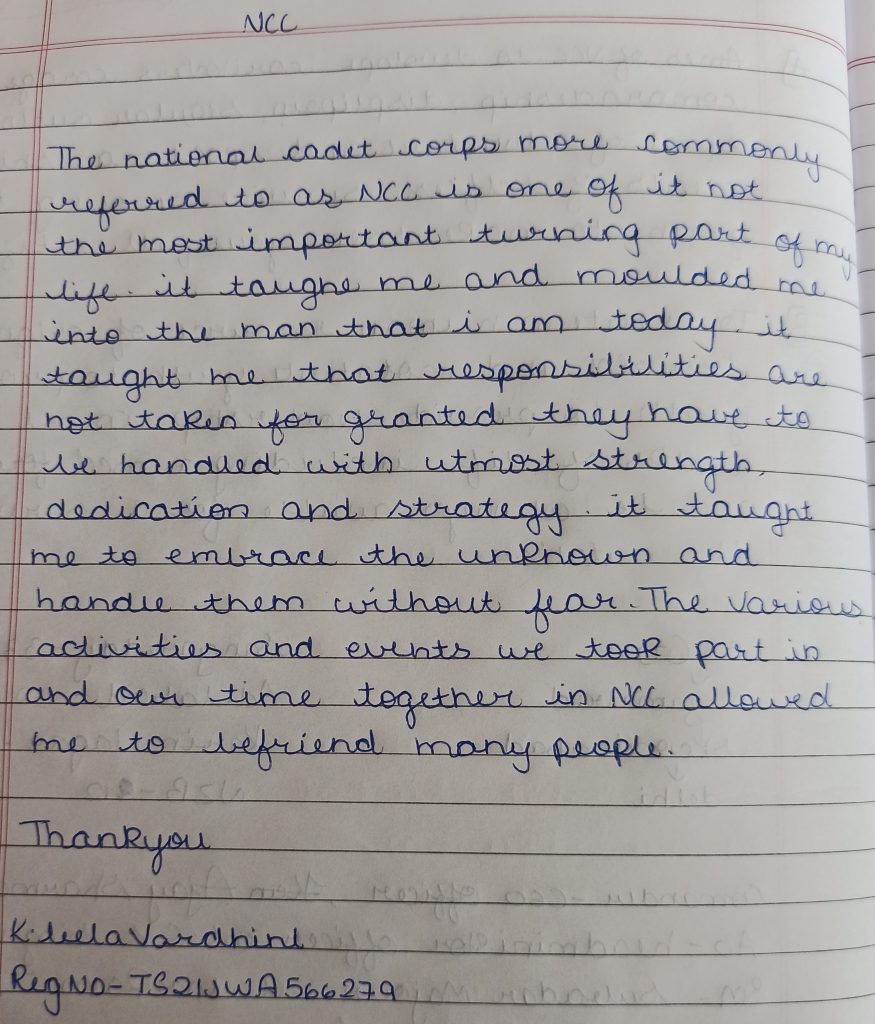 NCC
The national cadet corps more commonly
referred to as NCC is one of it not
the most important turning part of my
life. it taughe me and moulded me
into the man that i am today. it
taught me that responsibilities are
not taken for granted they have to
be handled with utmost strength,
dedication and strategy. it taught
me to embrace the unknown and
handle them without fear. The various
activities and events we took part in
and our time together in NCC allowed
me to befriend many people.
Thankyou
K. leela Vardhini
Reg No - TS21JWA566279